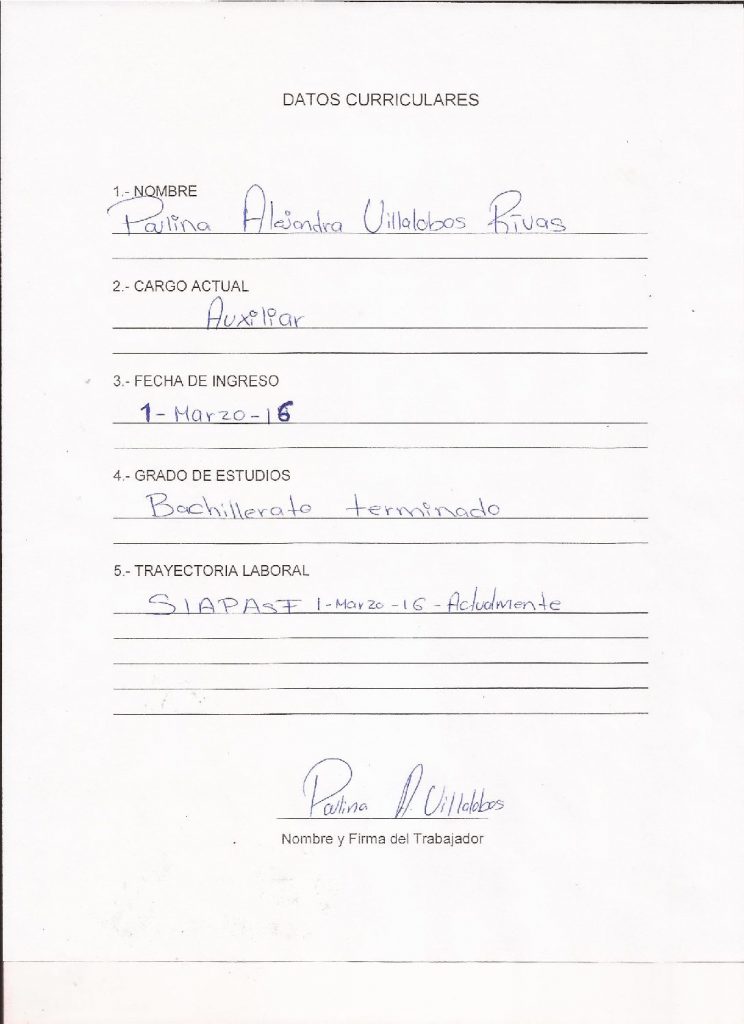 DATOS CURRICULARES
1.- NOMBRE
Paulina Alejandra Villalobos Rivas
2.- CARGO ACTUAL
Auxiliar
3.- FECHA DE INGRESO
1-Marzo-16
4.- GRADO DE ESTUDIOS
Bachillerato terminado
5.- TRAYECTORIA LABORAL
SIAPASF 1-Marzo-16-Actualmente
Paulina A. Villalobos
Nombre y Firma del Trabajador